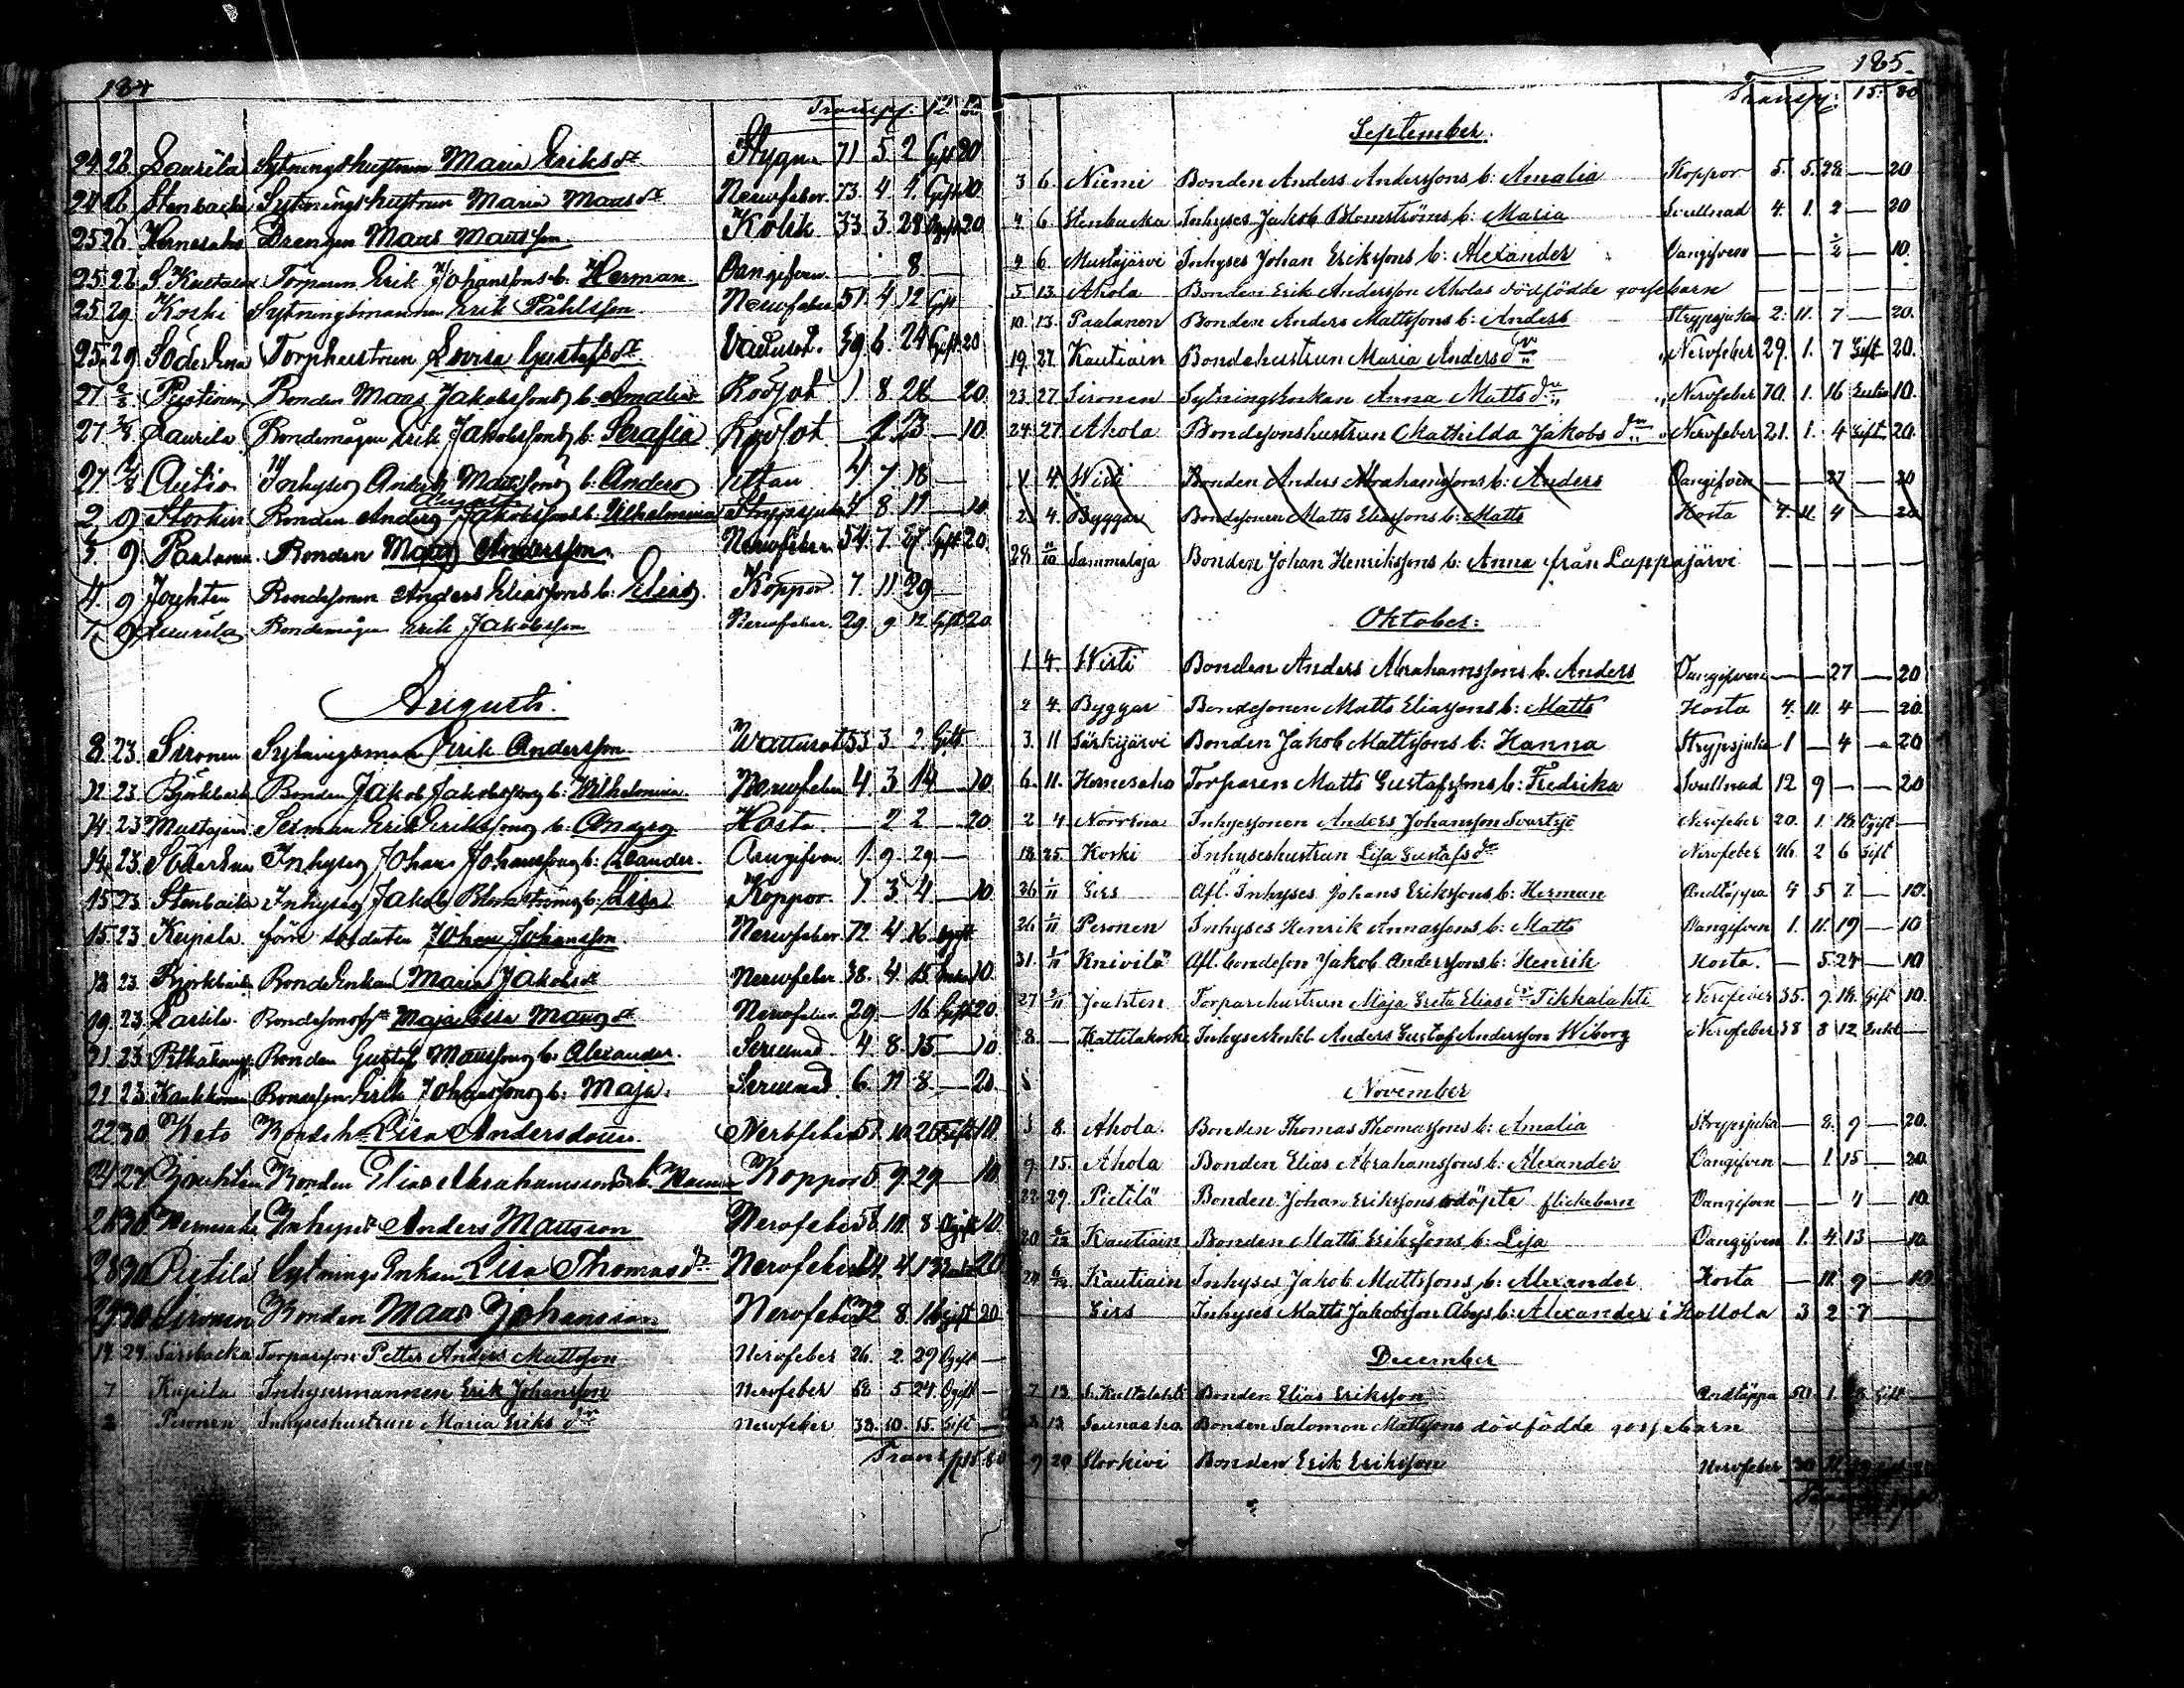 184
Transp. 12. 50
24. 26. Laurila Sytningshustrun Maria Eriksdr Stygn 71 5 2 Gift 20
24 26 Stenbacka Sytningshustrun Maria Mansdr Nervfeber. 73. 4 4. Gift 20
25 26. Hernesaho Drengen Mans Mansson Kolik 33 3. 28 Ogift 20
25. 26 Torparen Erik Johanssons b. Herman Oangifven — — 8. —
25 29 Koski Sytningsmannen Erik Påhlsson Nervfeber 51. 4 12 Gift
25. 29 Torphustrun Lovisa Gustafsdr Vådusot. 39. 6. 24 Gift 20
27 2/8 Pystinen Bonden Mans Jakobssons b. Amalia Rödsot 1 8 28 — 20
27 2/8 Laurila Bondemågen Erik Jakobssons b: Serafia Rödsot — 23 — 10
27. 2/8 Autio Inhyses Anders Mattssons b: Anders Hettan 4 7 18 —
2. 9 Storkivi Bonden Anders Jakobssons b. Wilhelmina Strypsjuka 4 8 17 — 10
3. 9. Paalanen Bonden Mans Andersson Nervfeber 54. 7. 27. Gift 20.
4. 9 Jouhten Bondesonen Anders Eliassons b. Elias Koppor 7. 11 29 —
7. 9 Laurila Bondemågen Erik Jakobsson Nervfeber. 29. 9 12 Gift 20
Augusti.
8. 23. Sironen Sytningsman Erik Andersson Wattusot 53 3 2. Gift
12. 23. Björkbacka Bonden Jakob Jakobssons b. Wilhelmina. Nervfeber 4. 3 14 — 10
14. 23 Mustajärvi Erik Erikssons b. Anders Hosta. — 2 2 — 20
14. 23. Inhyses Johan Johanssons b: Alexander. Oangifven 1. 9. 29 —
15 23. Stenbacka Inhyses Jakob Blomströms b. Lisa Koppor. 1 3. 4 — 10
15. 23 Keipala förre soldaten Johan Johansson. Nervfeber 72. 4 16 Ogift
18. 23. Björkbacka Bondeenkan Maria Jakobsdr Nervfeber 38. 4. 15 Enka 10.
19. 23. Laurila Maja Lisa Mansdr Nervfeber. 29 — 16 Gift 20.
21. 23. Bonden Gustaf Manssons b. Alexander. Svullnad 4. 8. 15 — 10
21. 23. Karhkonen Bondeson Erik Johanssons b: Maja. Svullnad. 6. 11 8. — 20.
22 30. Keto Bondeh. Lisa Andersdotter. Nervfeber 57. 10. 26 Gift 10.
24 27. Jouhten Bonden Elias Abrahamssons b. Hanna Koppor 5 9. 29 10
28 30 Hernesaho Inhyses Anders Mattsson Nervfeber 58. 10. 8 Ogift 10.
28 30 Pietilä Sytningsenkan Lisa Thomasdr Nervfeber 74. 4 13 Enka 20
29 30 Sironen Bonden Mans Johansson Nervfeber 32 8. 16 Gift 20
14. 24. Sarsbacka Torparson Petter Anders Mattsson Nervfeber 26. 2. 29 Ogift —
7 Keipila Inhysesmannen Erik Johansson Nervfeber 58 5 24. Ogift —
2 Peronen Inhyseshustrun Maria Eriksdr Nervfeber 38. 10. 15. Gift —
Transp.
185.
Transp: 15. 80
September.
3 6. Niemi Bonden Anders Anderssons b: Amalia Koppor 5. 5. 28 — 20
4 6 Stenbacka Inhyses Jakob Blomströms b: Maria Svullnad 4. 1. 2 — 20
4 6 Mustajärvi Inhyses Johan Erikssons b: Alexander Oangifven — — 1/2 — 10.
5 13. Ahola Bonden Erik Andersson Aholas dödfödde gossebarn — — — — —
10. 13. Paalanen Bonden Anders Mattssons b: Anders Strypsjuka 2. 11. 7 — 20.
19. 27. Kautiain Bondehustrun Maria Andersdr Nervfeber 29. 1. 7 Gift 20.
23. 27. Sironen Sytningsenkan Anna Mattsdr Nervfeber 70. 1. 16 Enka 10.
24. 27. Ahola Bondesonshustrun Mathilda Jakobsdr Nervfeber 21. 1. 4 Gift 20.
1. 4. Wisti Bonden Anders Abrahamssons b: Anders Oangifven — — 27 — 20
2. 4. Byggar Bondesonen Matts Eliassons b: Matts Hosta 4. 11. 4 — 20
28 11/10 Sammaloja Bonden Johan Henrikssons b: Anna från Lappajärvi — — — — —
Oktober:
1. 4. Wisti Bonden Anders Abrahamssons b. Anders Oangifven — — 27 — 20
2 4. Byggar Bondesonen Matts Eliassons b: Matts Hosta 4. 11. 4 — 20.
3. 11 Särkijärvi Bonden Jakob Mattssons b: Hanna Strypsjuka 1 — 4 — 20
6. 11. Hernesaho Torparen Matts Gustafssons b: Fredrika Svullnad 12 9 — — 20
2 4. Norrena Inhysesonen Anders Johansson Svartsjö Nervfeber 20. 1. 18. Ogift —
18 25. Koski Inhyseshustrun Lisa Gustafsdr Nervfeber 46. 2 6 Gift
26 1/11 Girs Afl. Inhyses Johans Erikssons b: Herman Andtäppa 4 5 7. — 10.
26 1/11 Peronen Inhyses Henrik Annassons b: Matts Oangifven 1. 11. 19 — 10
31. 1/11 Knivilä Afl. bondeson Jakob Anderssons b: Henrik Hosta. — 5. 24 — 10
27 Jouhten Torparehustrun Maja Greta Eliasdr Tikkalahti Nervfeber 35. 9. 18. Gift 10.
8. — Kattilakoski Anders Gustaf Andersson Wiborg Nervfeber 38 8 12 Enkl —
November
3 8. Ahola. Bonden Thomas Thomassons b: Amalia Strypsjuka — 8. 9 — 20.
9. 15. Ahola Bonden Elias Abrahamssons b: Alexander Oangifven — 1. 15 — 20
22. 29. Pietilä Bonden Johan Erikssons odöpta flickebarn Oangifven — — 4 — 10.
20 6/12 Kautiain Bonden Matts Erikssons b: Lisa Oangifven 1. 4. 13 — 10.
24 6/12 Kautiain Inhyses Jakob Mattssons b: Alexander Hosta — 11. 9 — 10.
Girs Inhyses Matts Jakobsson Åbys b: Alexander i Hollola 3 2 7 —
December
7. 13. S. Kultalahti Bonden Elias Eriksson Andtäppa 50. 1. Gift —
2. 13. Saunaaho Bonden Salomon Mattssons dödfödda gossebarn
9 20 Storkivi Bonden Erik Eriksson Nervfeber